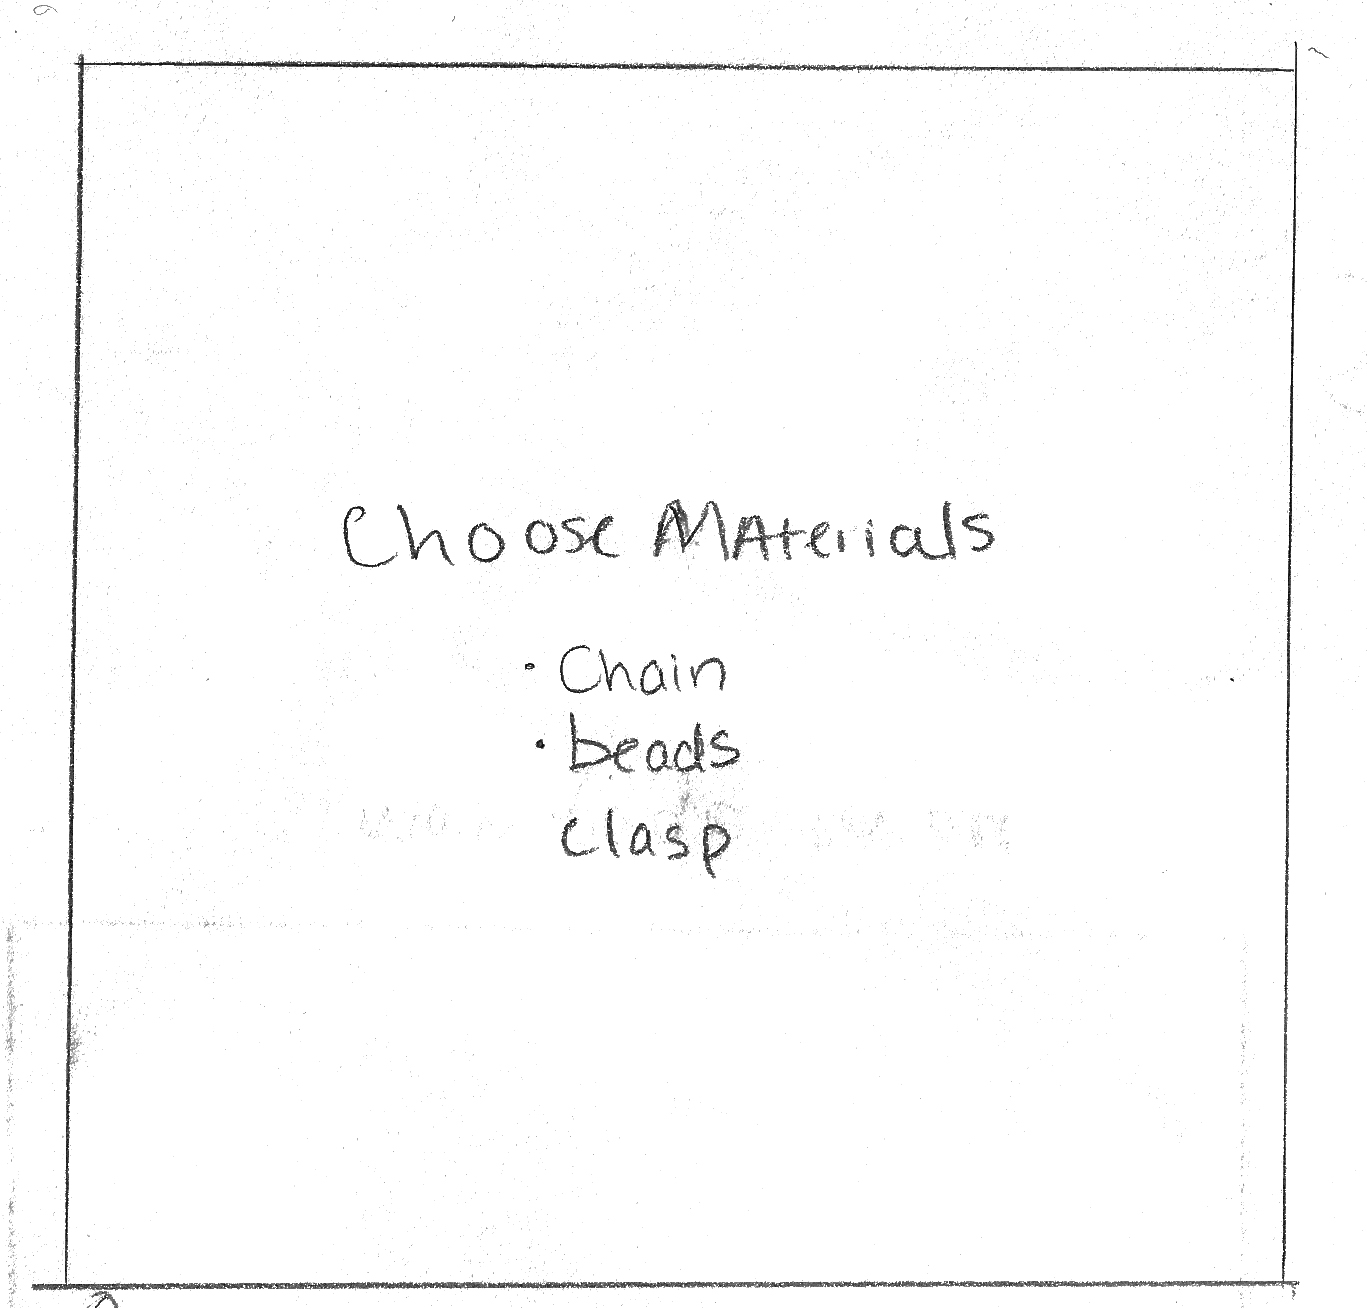 Choose MAterials
· Chain
· beads
clasp